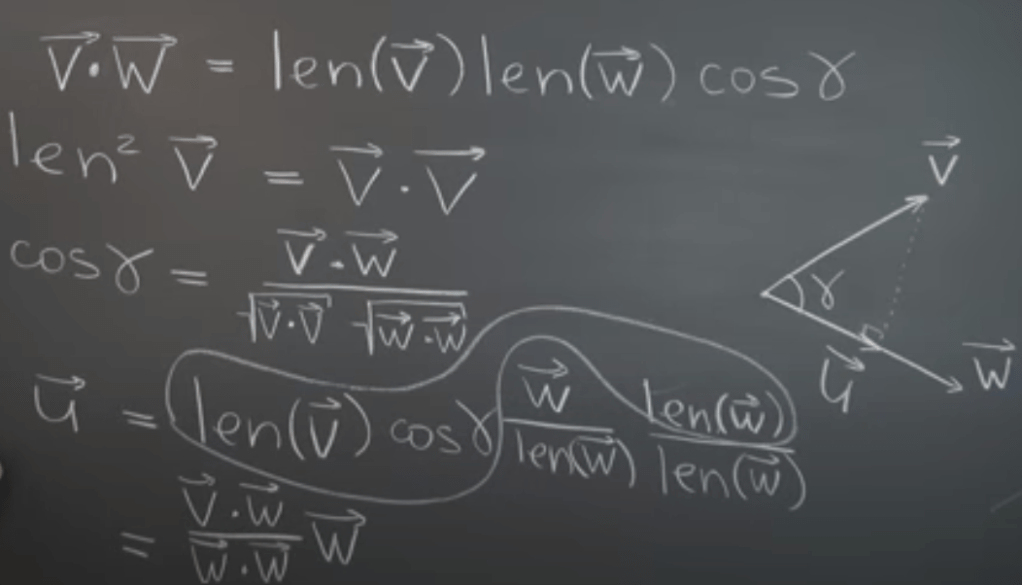 v⃗·w⃗ = len(v⃗) len(w⃗) cos γ
len² v⃗ = v⃗·v⃗
cos γ = v⃗·w⃗ / √(v⃗·v⃗) √(w⃗·w⃗)
u⃗ = len(v⃗) cos γ w⃗ / len(w⃗) len(w⃗) / len(w⃗)
= v⃗·w⃗ / w⃗·w⃗ w⃗
v⃗
γ
u⃗
w⃗